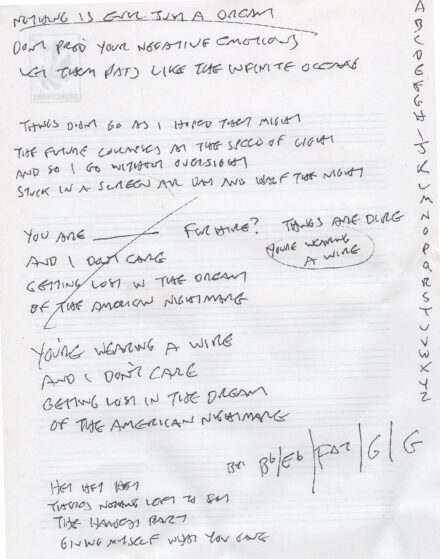 NOTHING IS EVER JUST A DREAM
DON'T FEED YOUR NEGATIVE EMOTIONS
LET THEM PASS LIKE THE INFINITE OCEANS
THINGS DON'T GO AS I HOPED THEY MIGHT
THE FUTURE COLLAPSES AT THE SPEED OF LIGHT
AND SO I GO WITHOUT OVERSIGHT
STUCK IN A SCREEN ALL DAY AND HALF THE NIGHT
YOU ARE ______ FOR HIRE? THINGS ARE DIRE
YOU'RE WEARING
A WIRE
AND I DON'T CARE
GETTING LOST IN THE DREAM
OF THE AMERICAN NIGHTMARE
YOU'RE WEARING A WIRE
AND I DON'T CARE
GETTING LOST IN THE DREAM
OF THE AMERICAN NIGHTMARE
BR: Bb/Eb | | G | G
HEY HEY HEY
THERE'S NOTHING LEFT TO SAY
THE HARDEST PART
GIVING MYSELF WHAT YOU GAVE
A
B
C
D
E
F
G
H
I
J
K
L
M
N
O
P
Q
R
S
T
U
V
W
X
Y
Z